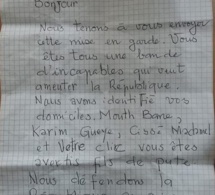 Bonjour
Nous tenons à vous envoyer
cette mise en garde. Vous
êtes tous une bande
d'incapables qui veut
ameuter la République.
Nous avons identifié vos
domiciles. Mouth Bane,
Karim Gueye, Cissé Madamel
et Votre clic vous êtes
avertis fils de pute
Nous défendons la